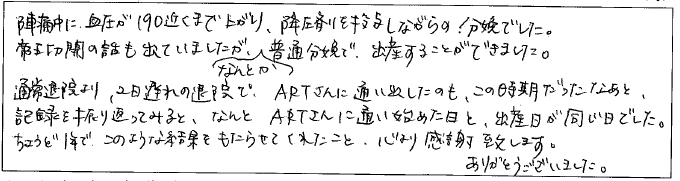 陣痛中に血圧が190近くまで上がり、降圧剤を投与しながらの分娩でした。
帝王切開の話も出ていましたが、なんとか普通分娩で、出産することができました。
通常退院より、2日遅れの退院で、ARTさんに通い出したのも、この時期だったなあと、
記録を振り返ってみると、なんと ARTさんに通い始めた日と、出産日が同じ日でした。
ちょうど1年で、このような結果をもたらせてくれたこと、心より感謝致します。
ありがとうございました。